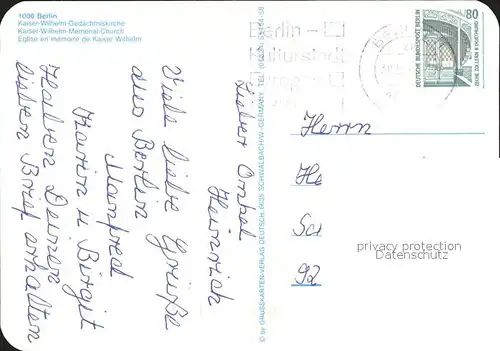 1000 Berlin
Kaiser-Wilhelm-Gedächtniskirche
Kaiser-Wilhelm-Memorial-Church
Eglise en mémoire de Kaiser Wilhelm
Lieber Onkel
Heinrich
Viele liebe Grüße
aus Berlin
Manfred
Karin u Birgit
Haben Deinen
lieben Brief erhalten
© by GRUSSKARTEN-VERLAG DEUTSCH, 6235 SCHWALBACH/W.-GERMANY TEL.
Berlin –
Kulturstadt
80
DEUTSCHE BUNDESPOST BERLIN
ZECHE ZOLLERN II DORTMUND
Herrn
He
Sc
92
privacy protection
Datenschutz